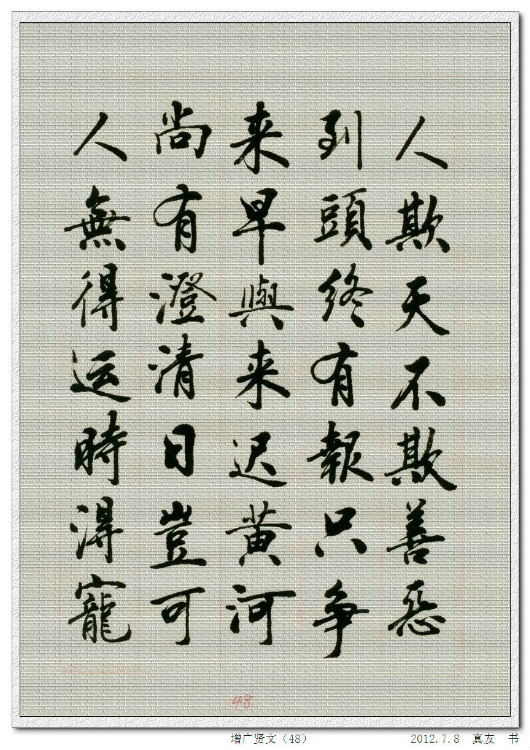 人欺天不欺善惡
到頭終有報只争
来早與来迟黄河
尚有澄清日豈可
人無得运時淂寵
48
增广贤文（48）
2012.7.8 真友 书